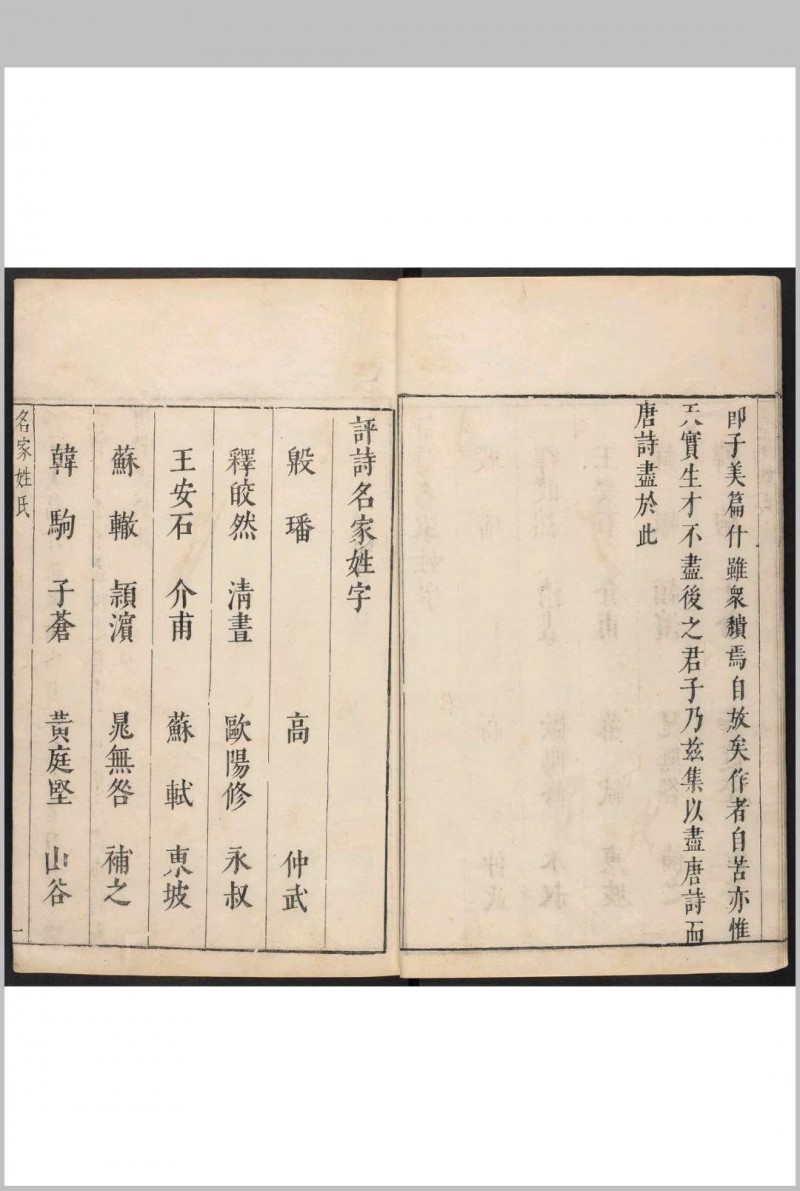 即子美篇什雖衆繢焉自放矣作者自苦亦惟
天實生才不盡後之君子乃玆集以盡唐詩而
唐詩盡於此
評詩名家姓字
殷璠 高 仲武
釋皎然 清晝 歐陽修 永叔
王安石 介甫 蘇軾 東坡
蘇轍 潁濵 晁無咎 補之
韓駒 子蒼 黃庭堅 山谷
名家姓氏
一